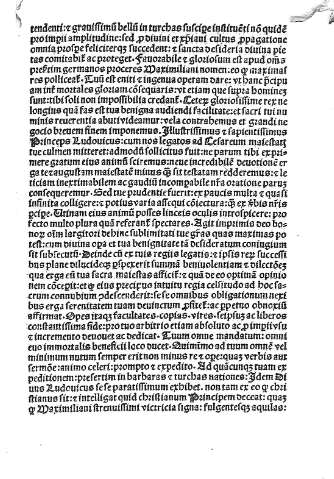 tendenti: et grauissimū bellū in turchas suscipe instituēti nō quidē
pro impii amplitudine: sed ꝓ diuini et xp̄iani cultus ꝓpagatione
omnia prospe feliciterqꝫ succedent: et sancta desideria diuina pie
tas comitabit̄ ac proteget. Fauorabile et gloriosum est apud om̄s
presertim germanos proceres Maximiliani nomen: eo ꝙ maximas
res pollicent̄. Tuū est eniti et ingenua operam dare: vt hanc p̄cipu
am int̄ mortales gloriam cōsequaris: vt etiam que supra homines
sunt: tibi soli non impossibilia credant̄. Ceterꝫ gloriosissime rex ne
longius quā fas est tua benigna audiendi facilitate: et sacri tui nu
minis reuerentia abuti videamur: vela contrahemus et grandi ne
gocio breuem finem imponemus. Illustrissimus et sapientissimus
Princeps Ludouicus: cum nos legatos ad Cesareum maiestatꝫ
tue culmen mitteret: admodū sollicitus fuit: ne parum tibi expri
mere gratum eius animū sciremus: neue incredibilē deuotionē er
ga te augustam maiestatē minus qͣꝫ sit testatam redderemus: et le
ticiam inextimabilem ac gaudiū incomparabile nr̄a oratione parūꝫ
consequeremur. Sed tue prudentie fuerit: rex paucis multa et quasi
infinita colligere: et potius variis assequi cōiectura: qͣꝫ ex vbis nr̄is
p̄cipe. Utinam eius animū posses linceis oculis introspicere: pro
fecto multo plura quā referant̄ spectares. Agit imprimis deo bo
noꝝ om̄ largitori
test: cum diuina ope et tua benignitate tā desideratum coniugium
sit subsecutū. Deinde cū ex tuis regiis legatis: et ipsis rex successi
bus plane dilucideqꝫ pspexerit summā beniuolentiam et dilectōeꝫ
qua erga eū tua sacra maiestas afficit̄: et quā de eo optimā opinio
nem cōcepit: et ꝙ eius precipuo intuitu regia celsitudo ad hoc sa-
crum connubium
bus erga serenitatem tuam deuinctum
affirmat. Opes itaqꝫ facultates: copias: vires: seipsuꝫ ac liberos
constantissima fide: pro tuo arbitrio etiam absoluto ac ꝓ impii vsu
et incremento deuouet ac dedicat. Tuum omne mandatum: omni
euo immortalis beneficii loco ducet. Quinimo ad tuum omnē vel
minimum nutum semper erit non minus re et ope: quaꝫ verbis aut
sermōe: animo celeri: prompto et expedito. Ad quācunqꝫ tuam ex
peditionem: presertim in barbaras et turchas nationes: Idem Di
uus Ludouicus se se paratissimum exhibet. non tam ex eo ꝙ chri
stianus sit: et intelligat quid christianum Principem deceat: quaꝫ
ꝙ Maximiliani strenuissimi victricia signa: fulgentesqꝫ aquilas: